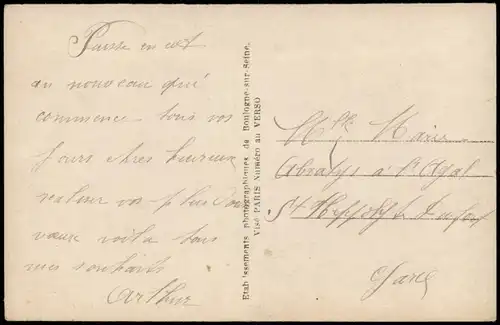 Puisse en cet
an nouveau qui
commence tous vos
jours etres heureux
vos plus
voeux voila tous
mes souhaits
Arthur
Etablissements photographiques de Boulogne-sur-Seine.
Visé PARIS Numéro au VERSO
Mlle Marie
à l'Agal
St Hippolyte du Fort
Gard